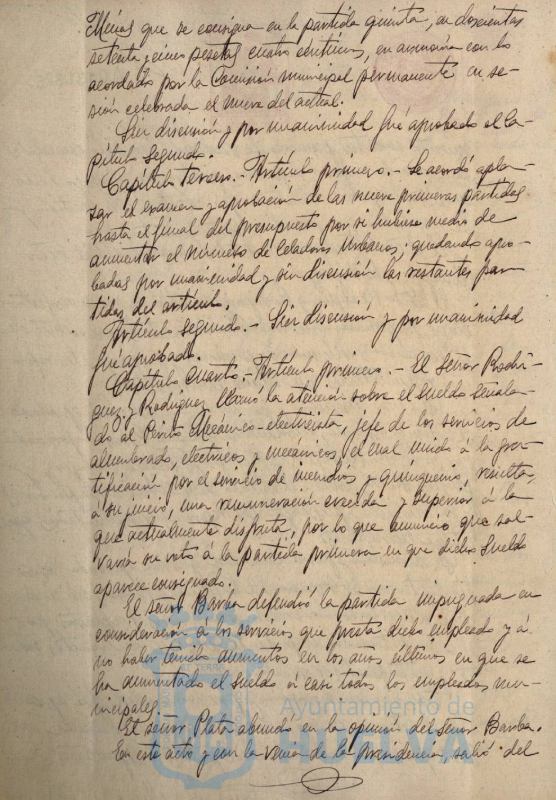 Mérias que se consigna en la partida quinta, en doscientas
setenta y cinco pesetas cuatro céntimos, en armonía con lo
acordado por la Comisión municipal permanente en se-
sión celebrada el nueve del actual.
Sin discusión y por unanimidad fué aprobado el Ca-
pítulo Segundo.
Capítulo Tercero.- Artículo primero.- Se acordó apla-
zar el examen y aprobación de las nueve primeras partidas
hasta el final del presupuesto por si hubiese medio de
aumentar el número de Celadores Urbanos, quedando apro-
badas por unanimidad y sin discusión las restantes par-
tidas del artículo.
Artículo Segundo.- Sin discusión y por unanimidad
fué aprobado.
Capítulo Cuarto.- Artículo primero.- El Señor Rodrí-
guez y Rodríguez llamó la atención sobre el sueldo señala-
do al Perito Mecánico-electricista, jefe de los servicios de
alumbrado, eléctricos y mecánicos, el cual unido á la gra-
tificación por el servicio de incendios y quinquenio, resulta
á su juicio, una remuneración crecida y superior á la
que actualmente disfruta, por lo que anunció que sal-
varía su voto á la partida primera en que dicho sueldo
aparece consignado.
El señor Barba defendió la partida impugnada en
consideración á los servicios que presta dicho empleado y á
no haber tenido aumentos en los años últimos en que se
ha aumentado el sueldo á casi todos los empleados mu-
nicipales.
El señor Plata abundó en la opinión del Señor Barba.
En este acto y con la venia de la presidencia, salió del
Ayuntamiento de
HUELVA